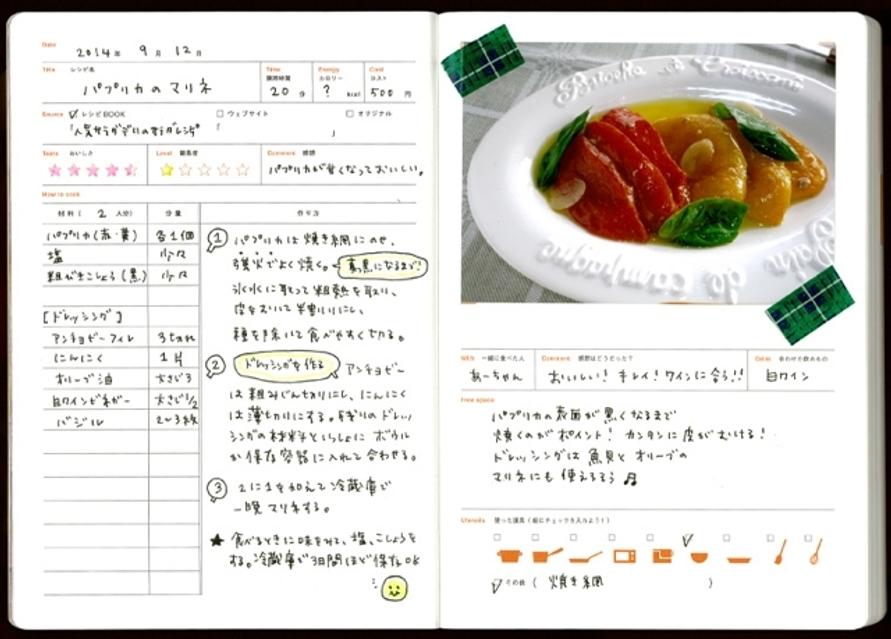 Date 2014年 9月 12日
Title レシピ名
パプリカのマリネ
Time 調理時間
20 分
Energy カロリー
? kcal
Cost コスト
500 円
Source ☑レシピBOOK □ウェブサイト □オリジナル
Taste おいしさ
Level 難易度
Comment 感想
パプリカが甘くなっておいしい。
How to cook
材料 ( 2 人分) 分量 作り方
パプリカ(赤・黄) 各1個
塩 少々
粗びきこしょう(黒) 少々
[ドレッシング]
アンチョビーフィレ 3切れ
にんにく 1片
オリーブ油 大さじ3
白ワインビネガー 大さじ1/2
バジル 2〜3枚
① パプリカは焼き網にのせ、
強火でよく焼く。 真っ黒になるまで!
氷水に取って粗熱を取り、
皮をむいて半割りにし、
種を除いて食べやすく切る。
② ドレッシングを作る アンチョビー
は粗みじん切りにし、にんにく
は薄切りにする。残りのドレッ
シングの材料といっしょに ボウル
か保存容器に入れて合わせる。
③ 2に1を加えて冷蔵庫で
一晩マリネする。
★ 食べるときに味をみて、塩、こしょうを
する。冷蔵庫で3日間ほど保存OK
Brioche et Croissant
Pain de campagne
With 一緒に食べた人
あーちゃん
Comment 感想はどうだった?
おいしい! キレイ! ワインに合う!!
Drink 合わせて飲みもの
白ワイン
Free space
パプリカの表面が黒くなるまで
焼くのがポイント! カンタンに皮がむける!
ドレッシングは魚貝とオリーブの
マリネにも使えるそう♬
Utensils 使った道具 (絵にチェックを入れよう!)
☑その他 ( 焼き網 )